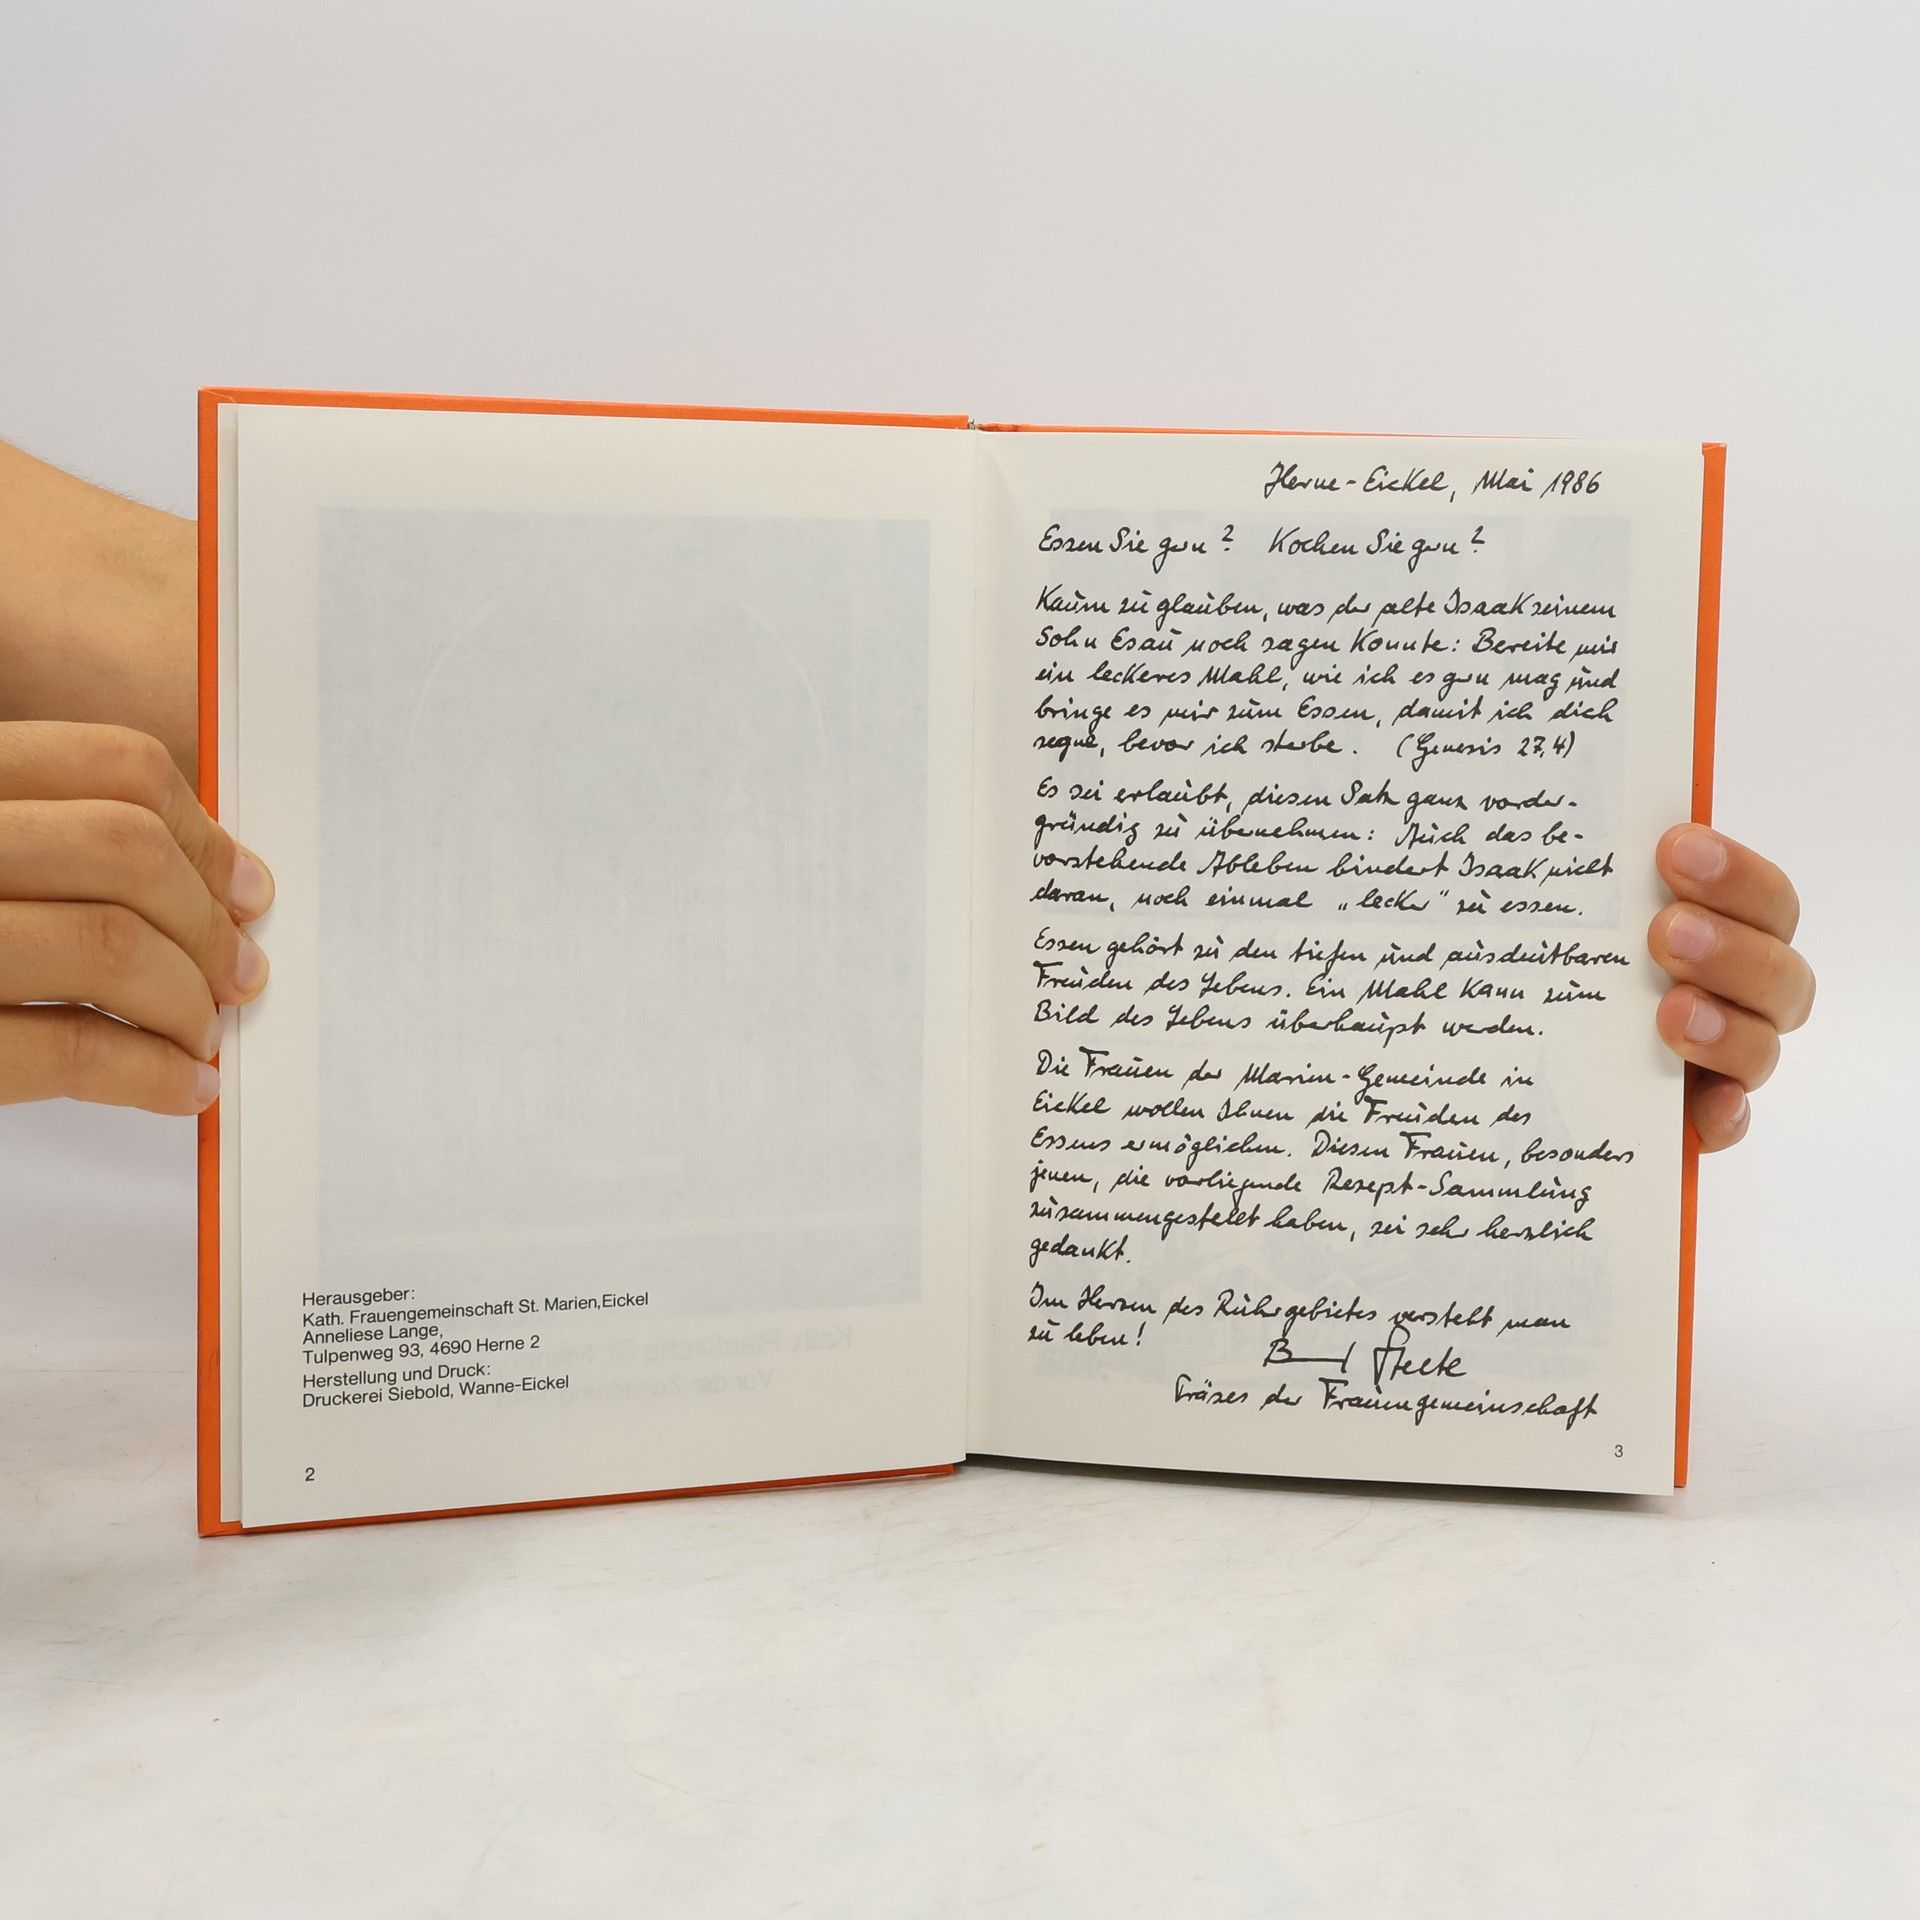 Herausgeber:
Kath. Frauengemeinschaft St. Marien,Eickel
Anneliese Lange,
Tulpenweg 93, 4690 Herne 2
Herstellung und Druck:
Druckerei Siebold, Wanne-Eickel
2
Herne-Eickel, Mai 1986
Essen Sie gern? Kochen Sie gern?
Kaum zu glauben, was der alte Isaak seinem
Sohn Esau noch sagen konnte: Bereite mir
ein leckeres Mahl, wie ich es gern mag und
bringe es mir zum Essen, damit ich dich
segne, bevor ich sterbe. (Genesis 27,4)
Es sei erlaubt, diesen Satz ganz vorder-
gründig zu übernehmen: Auch das be-
vorstehende Ableben hindert Isaak nicht
daran, noch einmal „lecker" zu essen.
Essen gehört zu den tiefen und ausdeutbaren
Freuden des Lebens. Ein Mahl kann zum
Bild des Lebens überhaupt werden.
Die Frauen der Marien-Gemeinde in
Eickel wollen Ihnen die Freuden des
Essens ermöglichen. Diesen Frauen, besonders
jenen, die vorliegende Rezept-Sammlung
zusammengestellt haben, sei sehr herzlich
gedankt.
Im Herzen des Ruhrgebietes versteht man
zu leben!
Präses der Frauengemeinschaft
3